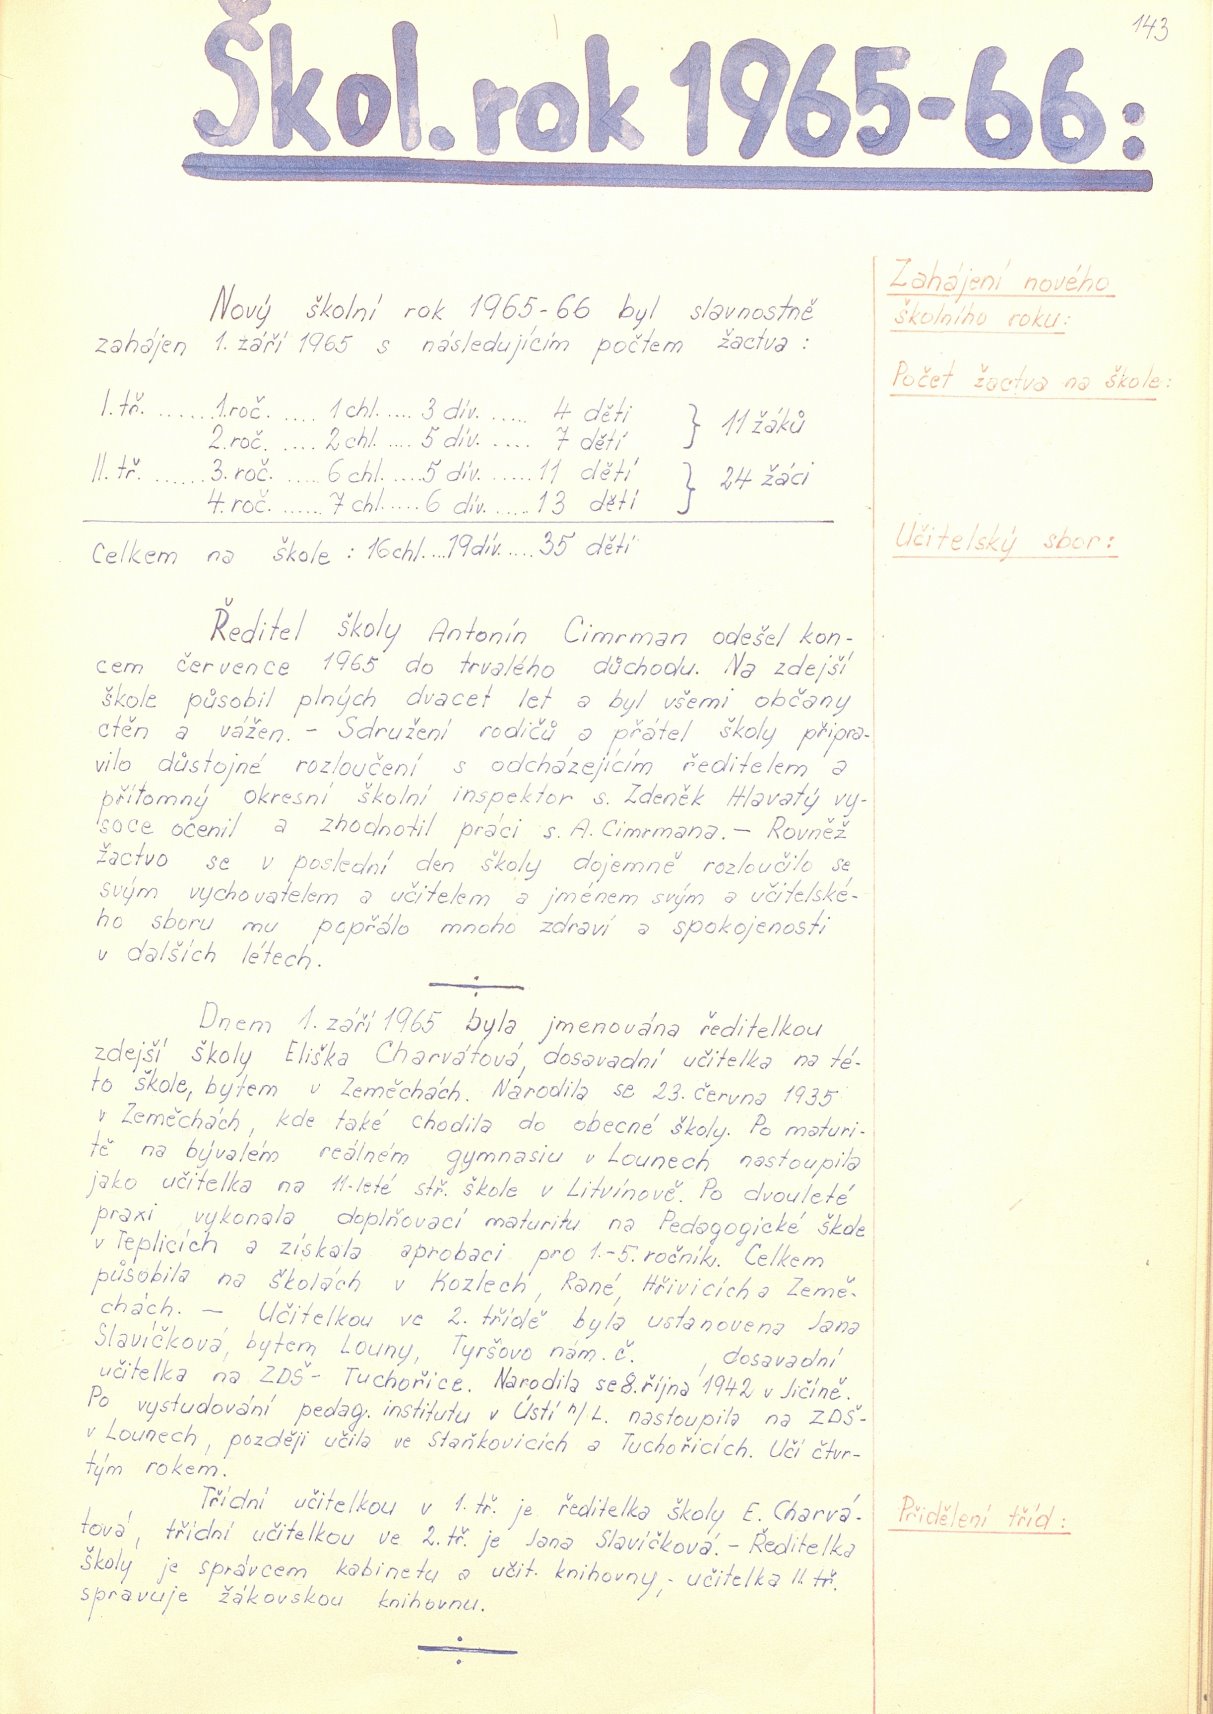 143
Škol. rok 1965-66:
Zahájení nového
školního roku:
Nový školní rok 1965-66 byl slavnostně
zahájen 1. září 1965 s následujícím počtem žactva :
Počet žactva na škole:
I. tř. ...... 1.roč. ..... 1 chl. .... 3 dív. ..... 4 děti } 11 žáků
2.roč. ..... 2 chl. .... 5 dív. ..... 7 dětí
II. tř. ...... 3. roč. ..... 6 chl. .... 5 dív. ...... 11 dětí } 24 žáci
4. roč. ...... 7 chl. ..... 6 dív. ..... 13 dětí
Celkem na škole : 16 chl. ... 19 dív. .... 35 dětí
Učitelský sbor:
Ředitel školy Antonín Cimrman odešel kon-
cem července 1965 do trvalého důchodu. Na zdejší
škole působil plných dvacet let a byl všemi občany
ctěn a vážen. - Sdružení rodičů a přátel školy připra-
vilo důstojné rozloučení s odcházejícím ředitelem a
přítomný okresní školní inspektor s. Zdeněk Hlavatý vy-
soce ocenil a zhodnotil práci s. A. Cimrmana. - Rovněž
žactvo se v poslední den školy dojemně rozloučilo se
svým vychovatelem a učitelem a jménem svým a učitelské-
ho sboru mu popřálo mnoho zdraví a spokojenosti
v dalších létech.
Dnem 1. září 1965 byla jmenována ředitelkou
zdejší školy Eliška Charvátová, dosavadní učitelka na té-
to škole, bytem v Zeměchách. Narodila se 23. června 1935
v Zeměchách, kde také chodila do obecné školy. Po maturi-
tě na bývalém reálném gymnasiu v Lounech nastoupila
jako učitelka na 11-leté stř. škole v Litvínově. Po dvouleté
praxi vykonala doplňovací maturitu na Pedagogické škole
v Teplicích a získala aprobaci pro 1.-5. ročník. Celkem
působila na školách v Kozlech, Rané, Hřivicích a Země-
chách. - Učitelkou ve 2. třídě byla ustanovena Jana
Slavíčková, bytem Louny, Tyršovo nám. č. , dosavadní
učitelka na ZDŠ - Tuchořice. Narodila se 8. října 1942 v Jičíně.
Po vystudování pedag. institutu v Ústí n/L. nastoupila na ZDŠ-
v Lounech, později učila ve Staňkovicích a Tuchořicích. Učí čtvr-
tým rokem.
Přidělení tříd:
Třídní učitelkou v 1. tř. je ředitelka školy E. Charvá-
tová, třídní učitelkou ve 2. tř. je Jana Slavíčková. - Ředitelka
školy je správcem kabinetu a učit. knihovny, - učitelka II. tř.
spravuje žákovskou knihovnu.